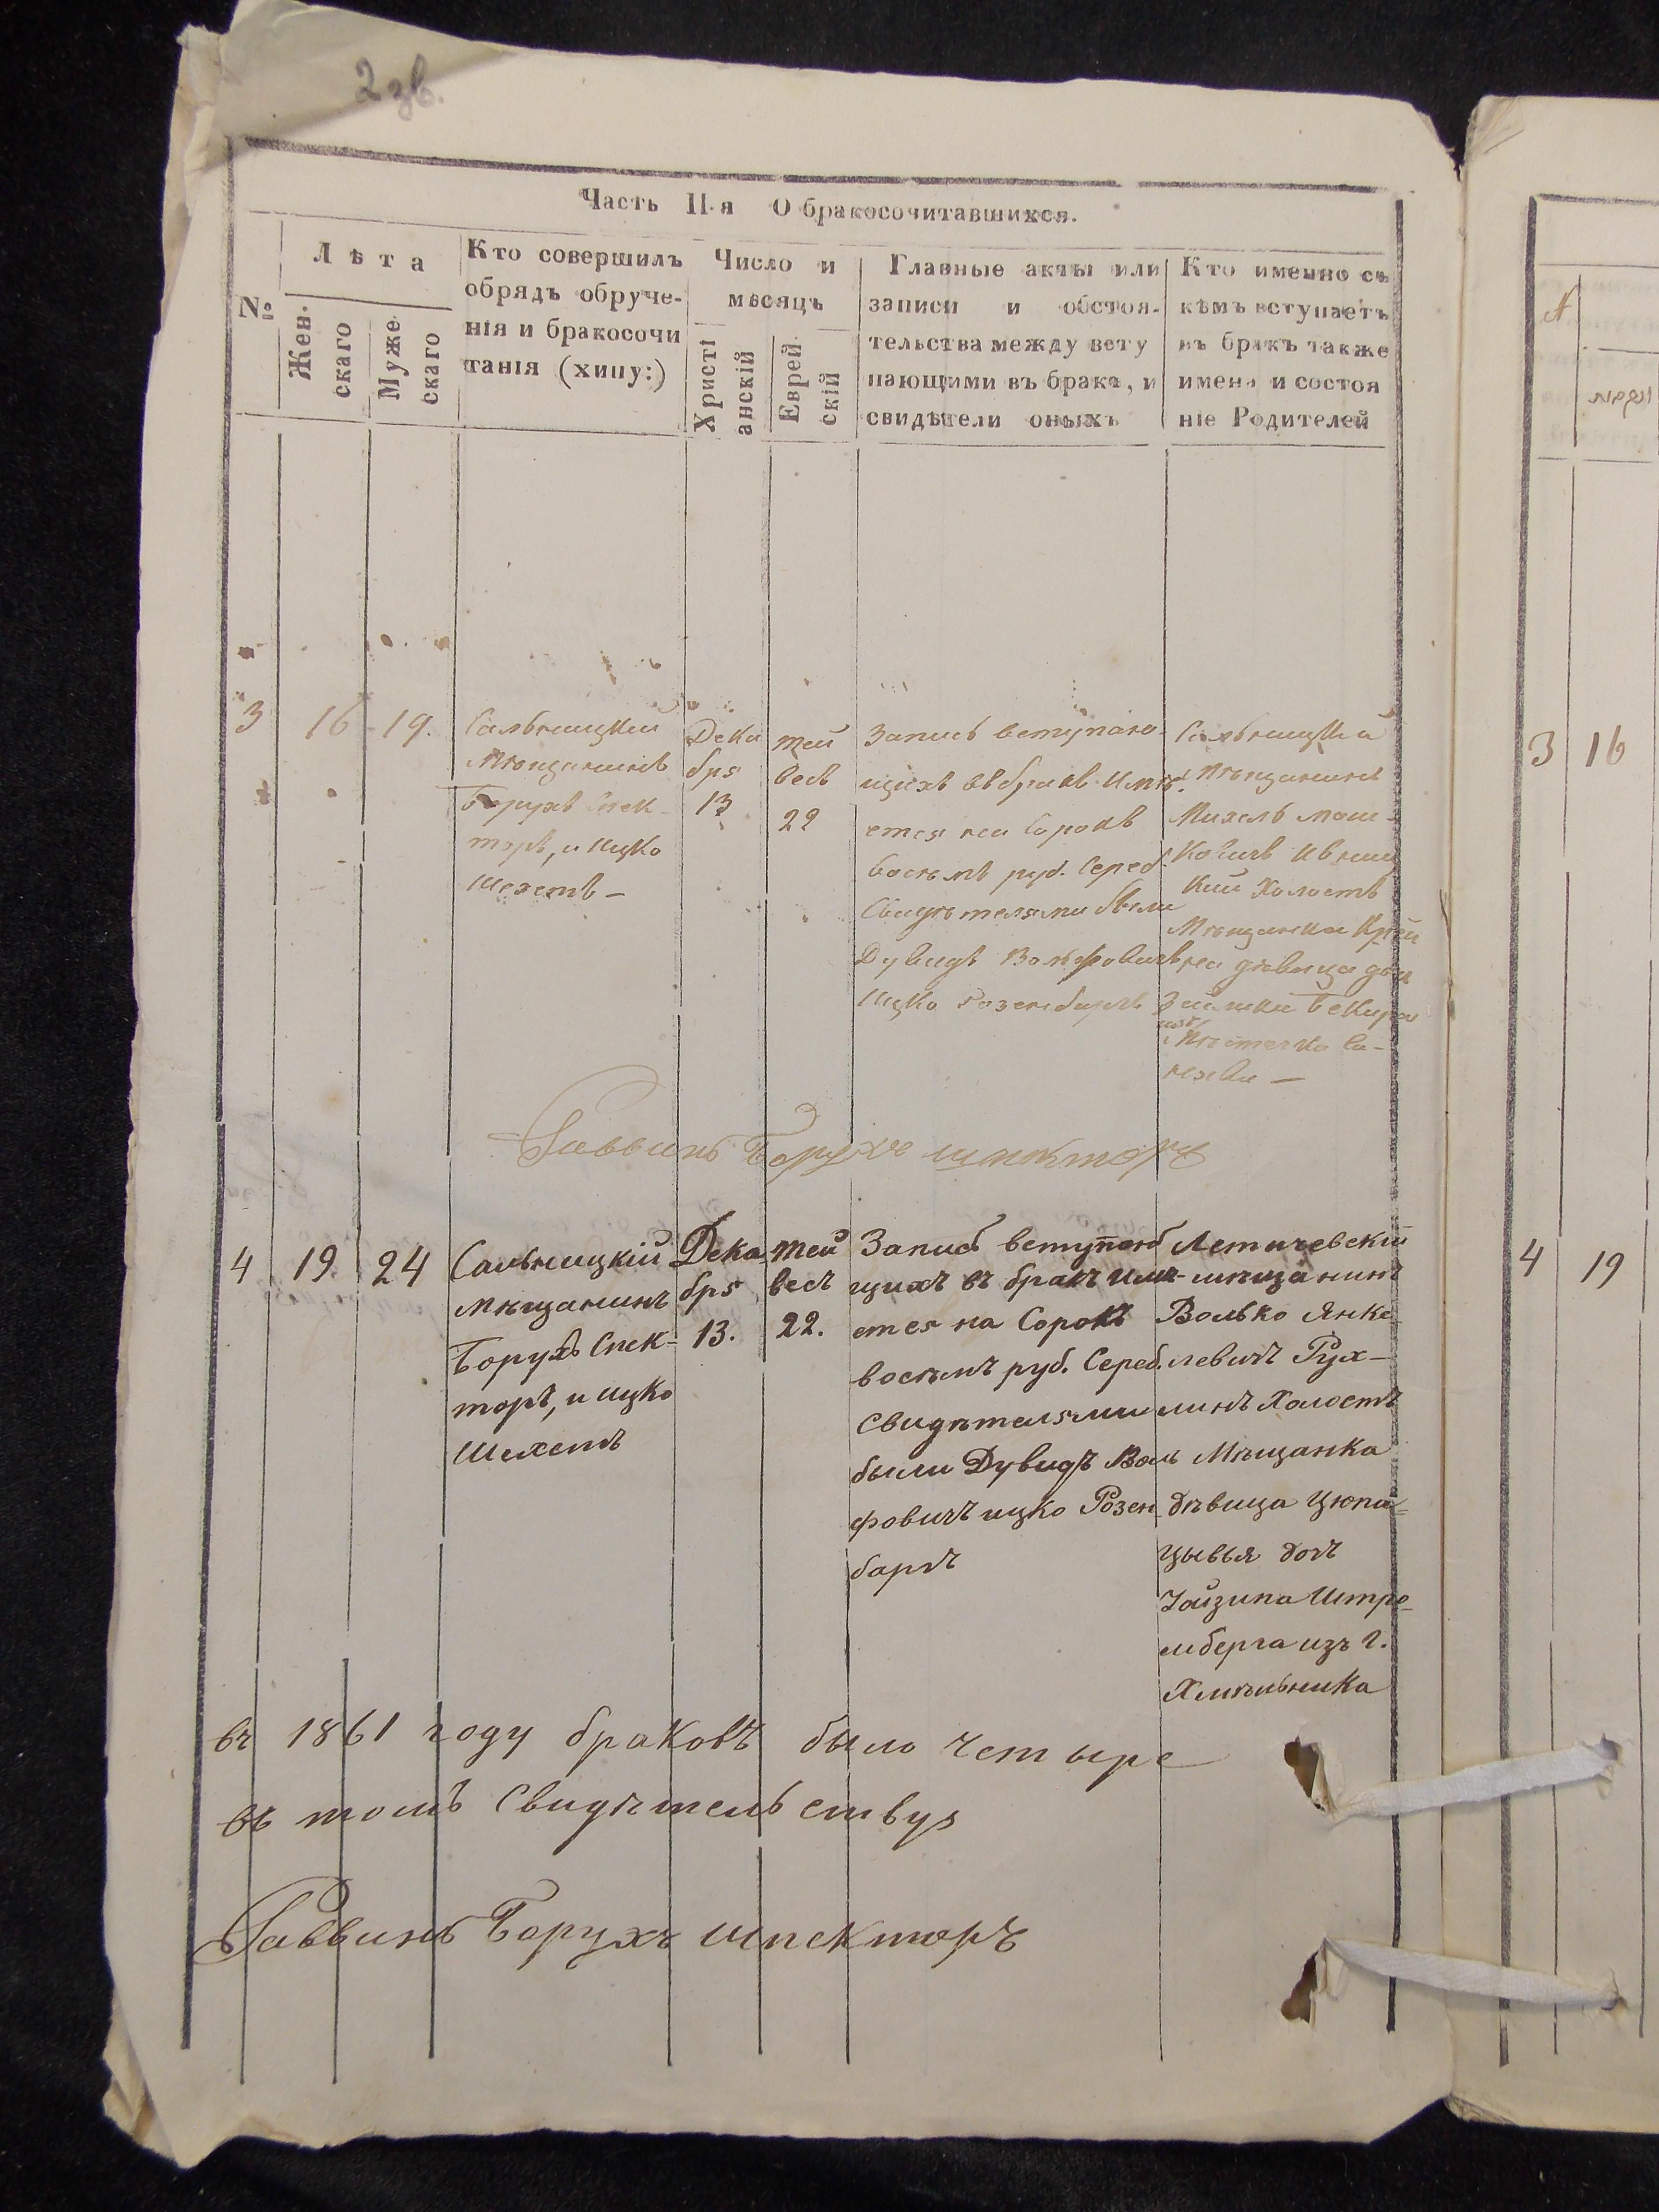 2 зв.
Часть II-я О бракосочитавшихся.
№
Лѣта
Женскаго
Мужескаго
Кто совершилъ
обрядъ обруче-
нія и бракосочи
танія (хипу:)
Число и
мѣсяцъ
Христі
анскій
Еврей
скій
Главные акты или
записи и обстоя-
тельства между вету
пающими въ бракъ, и
свидѣтели оныхъ
Кто именно съ
кѣмъ вступаетъ
въ бракъ также
имена и состоя
ніе Родителей
3
16
19.
Сальницкій
Мѣщанинъ
Борухъ Спек-
торъ, и Ицко
Шехетъ —
Дека
бря
13
тей
весъ
22
Запись вступаю-
щихъ въ бракъ имѣ-
ется на Сорокъ
восемь руб. Сереб.
Свидѣтелями были
Дувидъ Вольфовичъ
Ицко Розенбаргъ
Сальницкій
Мѣщанинъ
Михель
холостъ
Мѣщанка
дѣвица доч
изъ
Мѣстечка
Раввинъ Борухъ шпекторъ
4
19
24
Сальницкій
Мѣщанинъ
Борухъ Спек-
торъ, и ицко
Шехетъ
Дека
бря
13.
тей
весъ
22.
Запись вступаю
щихъ въ бракъ имѣ-
ется на Сорокъ
восемь руб. Сереб.
Свидѣтелями
были Дувидъ Воль
фовичъ ицко Розен
баргъ
Летичевскій
мѣщанинъ
Волько Янке-
левичъ Рух-
линъ Холостъ
Мѣщанка
дѣвица Цюпа-
Цывья доч
Штре-
мберга изъ г.
Хмѣльника
въ 1861 году браковъ было четыре
въ томъ Свидѣтельствуя
Раввинъ Борухъ шпекторъ
3
16
4
19